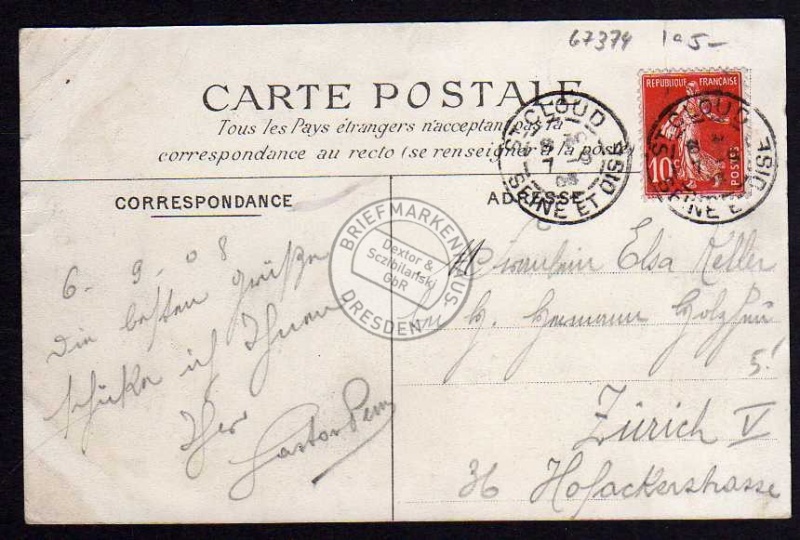 67374 1a 5-
CARTE POSTALE
Tous les Pays étrangers n'acceptant pas la
correspondance au recto (se renseigner à la poste)
REPUBLIQUE FRANÇAISE
10c
POSTES
ST CLOUD
SEINE ET OISE
ST CLOUD
SEINE ET OISE
CORRESPONDANCE
ADRESSE
BRIEFMARKENHAUS
Dextor &
Sczibilanski
GbR
DRESDEN
6 - 9 - 08
Die besten Grüße
schicke ich Ihnen
Ihr
Fräulein Elsa Keller
H. Hermann
Zürich V
36 Hofackerstrasse